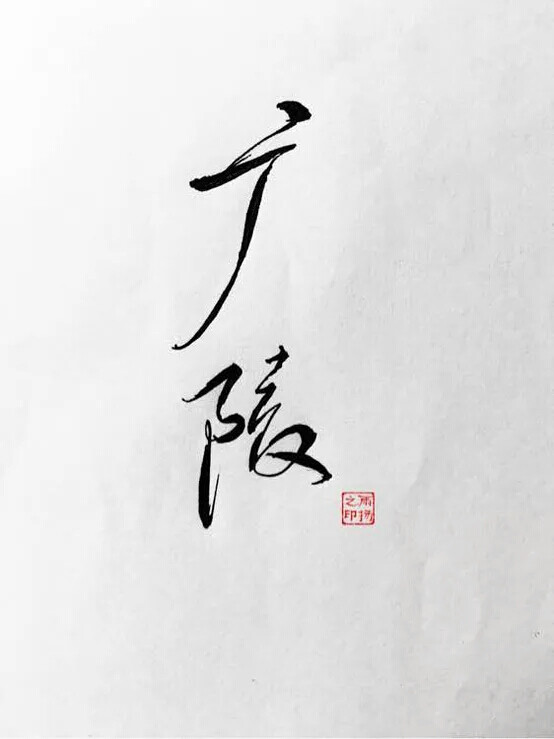 广陵
雨扬之印